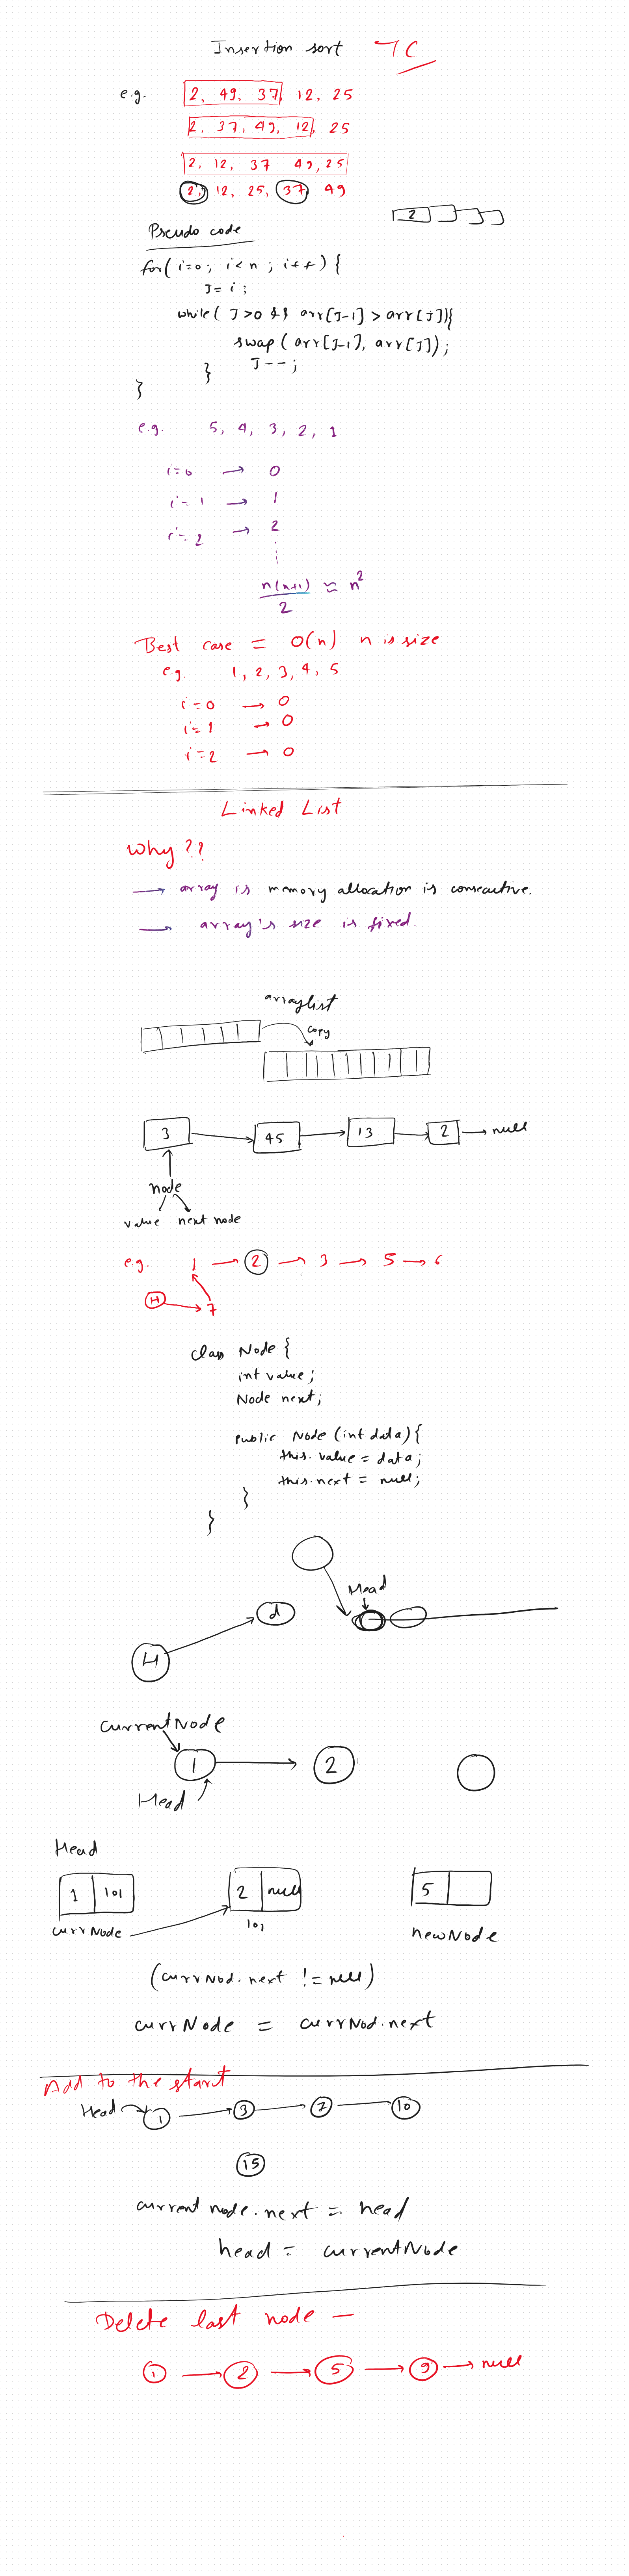 Insertion sort TC
e.g. 2, 49, 37, 12, 25
2, 37, 49, 12, 25
2, 12, 37 49, 25
2, 12, 25, 37, 49
2
Pseudo code
for( i=0; i<n ; i++) {
J= i ;
while( J>0 && arr[J-1] > arr[j]){
swap( arr[J-1], arr[J]);
J--;
}
}
e.g. 5, 4, 3, 2, 1
i=0 → 0
i=1 → 1
i=2 → 2
n(n+1)/2 ≈ n²
Best case = O(n) n is size
e.g. 1, 2, 3, 4, 5
i=0 → 0
i=1 → 0
i=2 → 0
Linked List
Why??
→ array is memory allocation is consecutive.
→ array's size is fixed.
arraylist
copy
3 → 45 → 13 → 2 → null
node
value next node
e.g. 1 → 2 → 3 → 5 → 6
H → 7
class Node {
int value;
Node next;
public Node (int data){
this.value = data;
this.next = null;
}
}
Head
d
H
currentNode
1 → 2
Head
Head
1 101 2 null 5
currNode 101 newNode
(currNod.next != null)
currNode = currNod.next
Add to the start
Head → 1 → 3 → 7 — 10
15
current node.next = head
head = currentNode
Delete last node —
1 → 2 → 5 → 9 → null